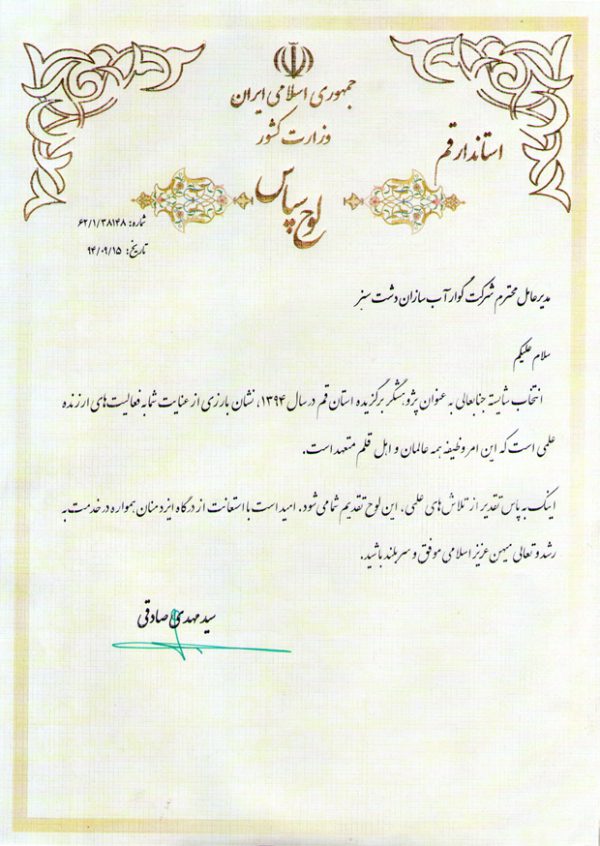 جمهوری اسلامی ایران
وزارت کشور
استاندار قم
لوح سپاس
شماره: ۶۲/۱/۳۸۱۴۸
تاریخ: ۹۴/۰۹/۱۵
مدیرعامل محترم شرکت گوار آب سازان دشت سبز
سلام علیکم
انتخاب شایسته جنابعالی به عنوان پژوهشگر برگزیده استان قم در سال ۱۳۹۴، نشان بارزی از عنایت شما به فعالیت‌های ارزنده
علمی است که این امر وظیفه همه عالمان و اهل قلم متعهد است.
اینک به پاس تقدیر از تلاش‌های علمی، این لوح تقدیم شما می‌شود. امید است با استعانت از درگاه ایزد منان همواره در خدمت به
رشد و تعالی میهن عزیز اسلامی موفق و سربلند باشید.
سید مهدی صادقی